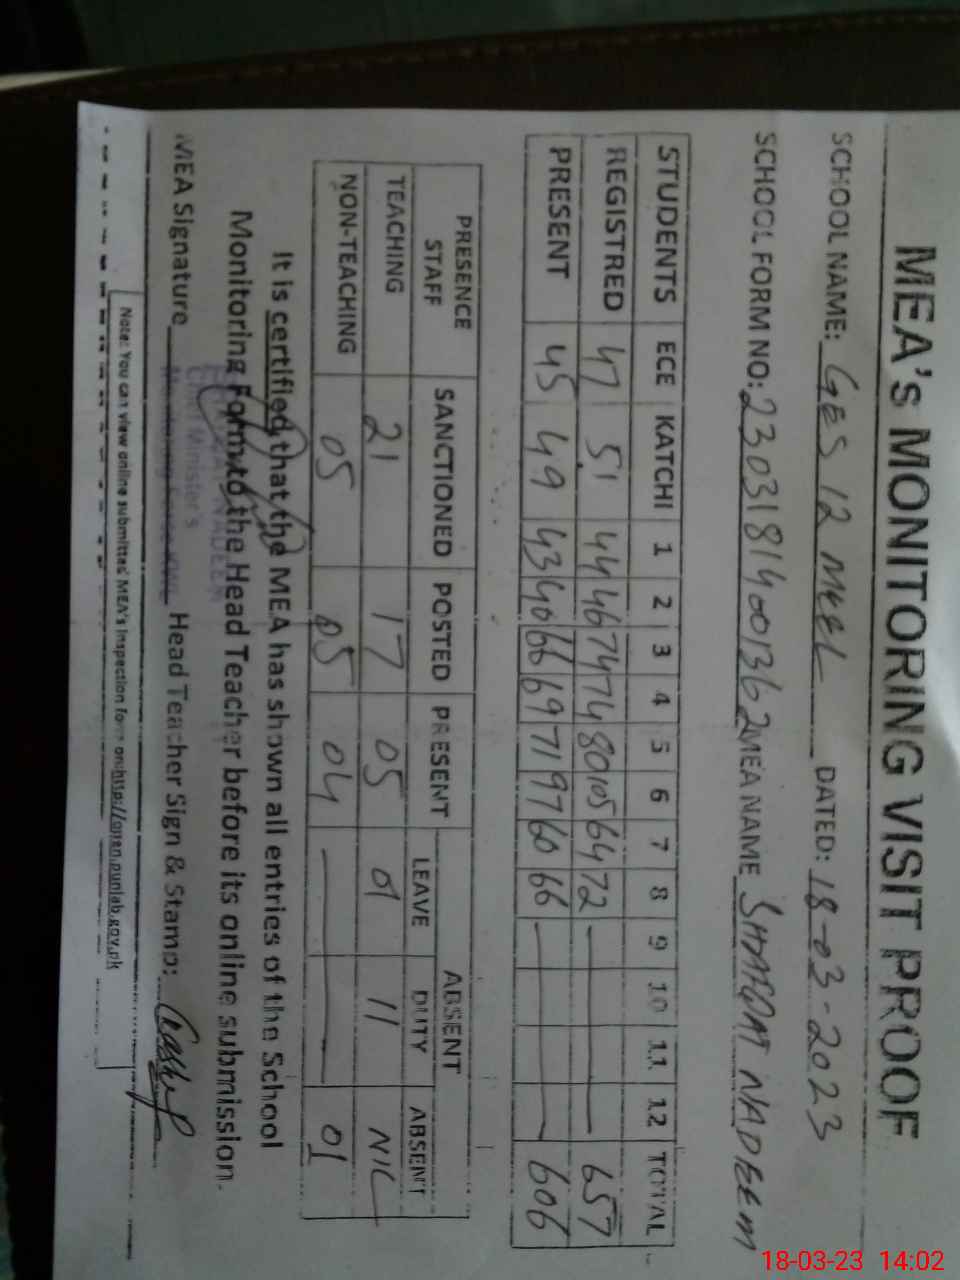 MEA's MONITORING VISIT PROOF
SCHOOL NAME: GES 12 DATED: 18-03-2023
SCHOOL FORM NO: 23031814001362 MEA NAME SHAFQAT NADEEM
STUDENTS ECE KATCHI 1 2 3 4 5 6 7 8 9 10 11 12 TOTAL
REGISTRED 47 51 44 46 74 74 80 105 64 72 — — 657
PRESENT 45 49 43 40 66 69 71 97 60 66 — — 606
PRESENCE STAFF SANCTIONED POSTED PRESENT ABSENT
LEAVE DUTY ABSENT
TEACHING 21 17 05 01 11 NIL
NON-TEACHING 05 05 04 — — 01
It is certified that the MEA has shown all entries of the School
Monitoring Form to the Head Teacher before its online submission.
NADEEM
Chief Minister's
MEA Signature Head Teacher Sign & Stamp:
Note: You can view online submitted MEA's Inspection form on:http://open.punjab.gov.pk
18-03-23 14:02